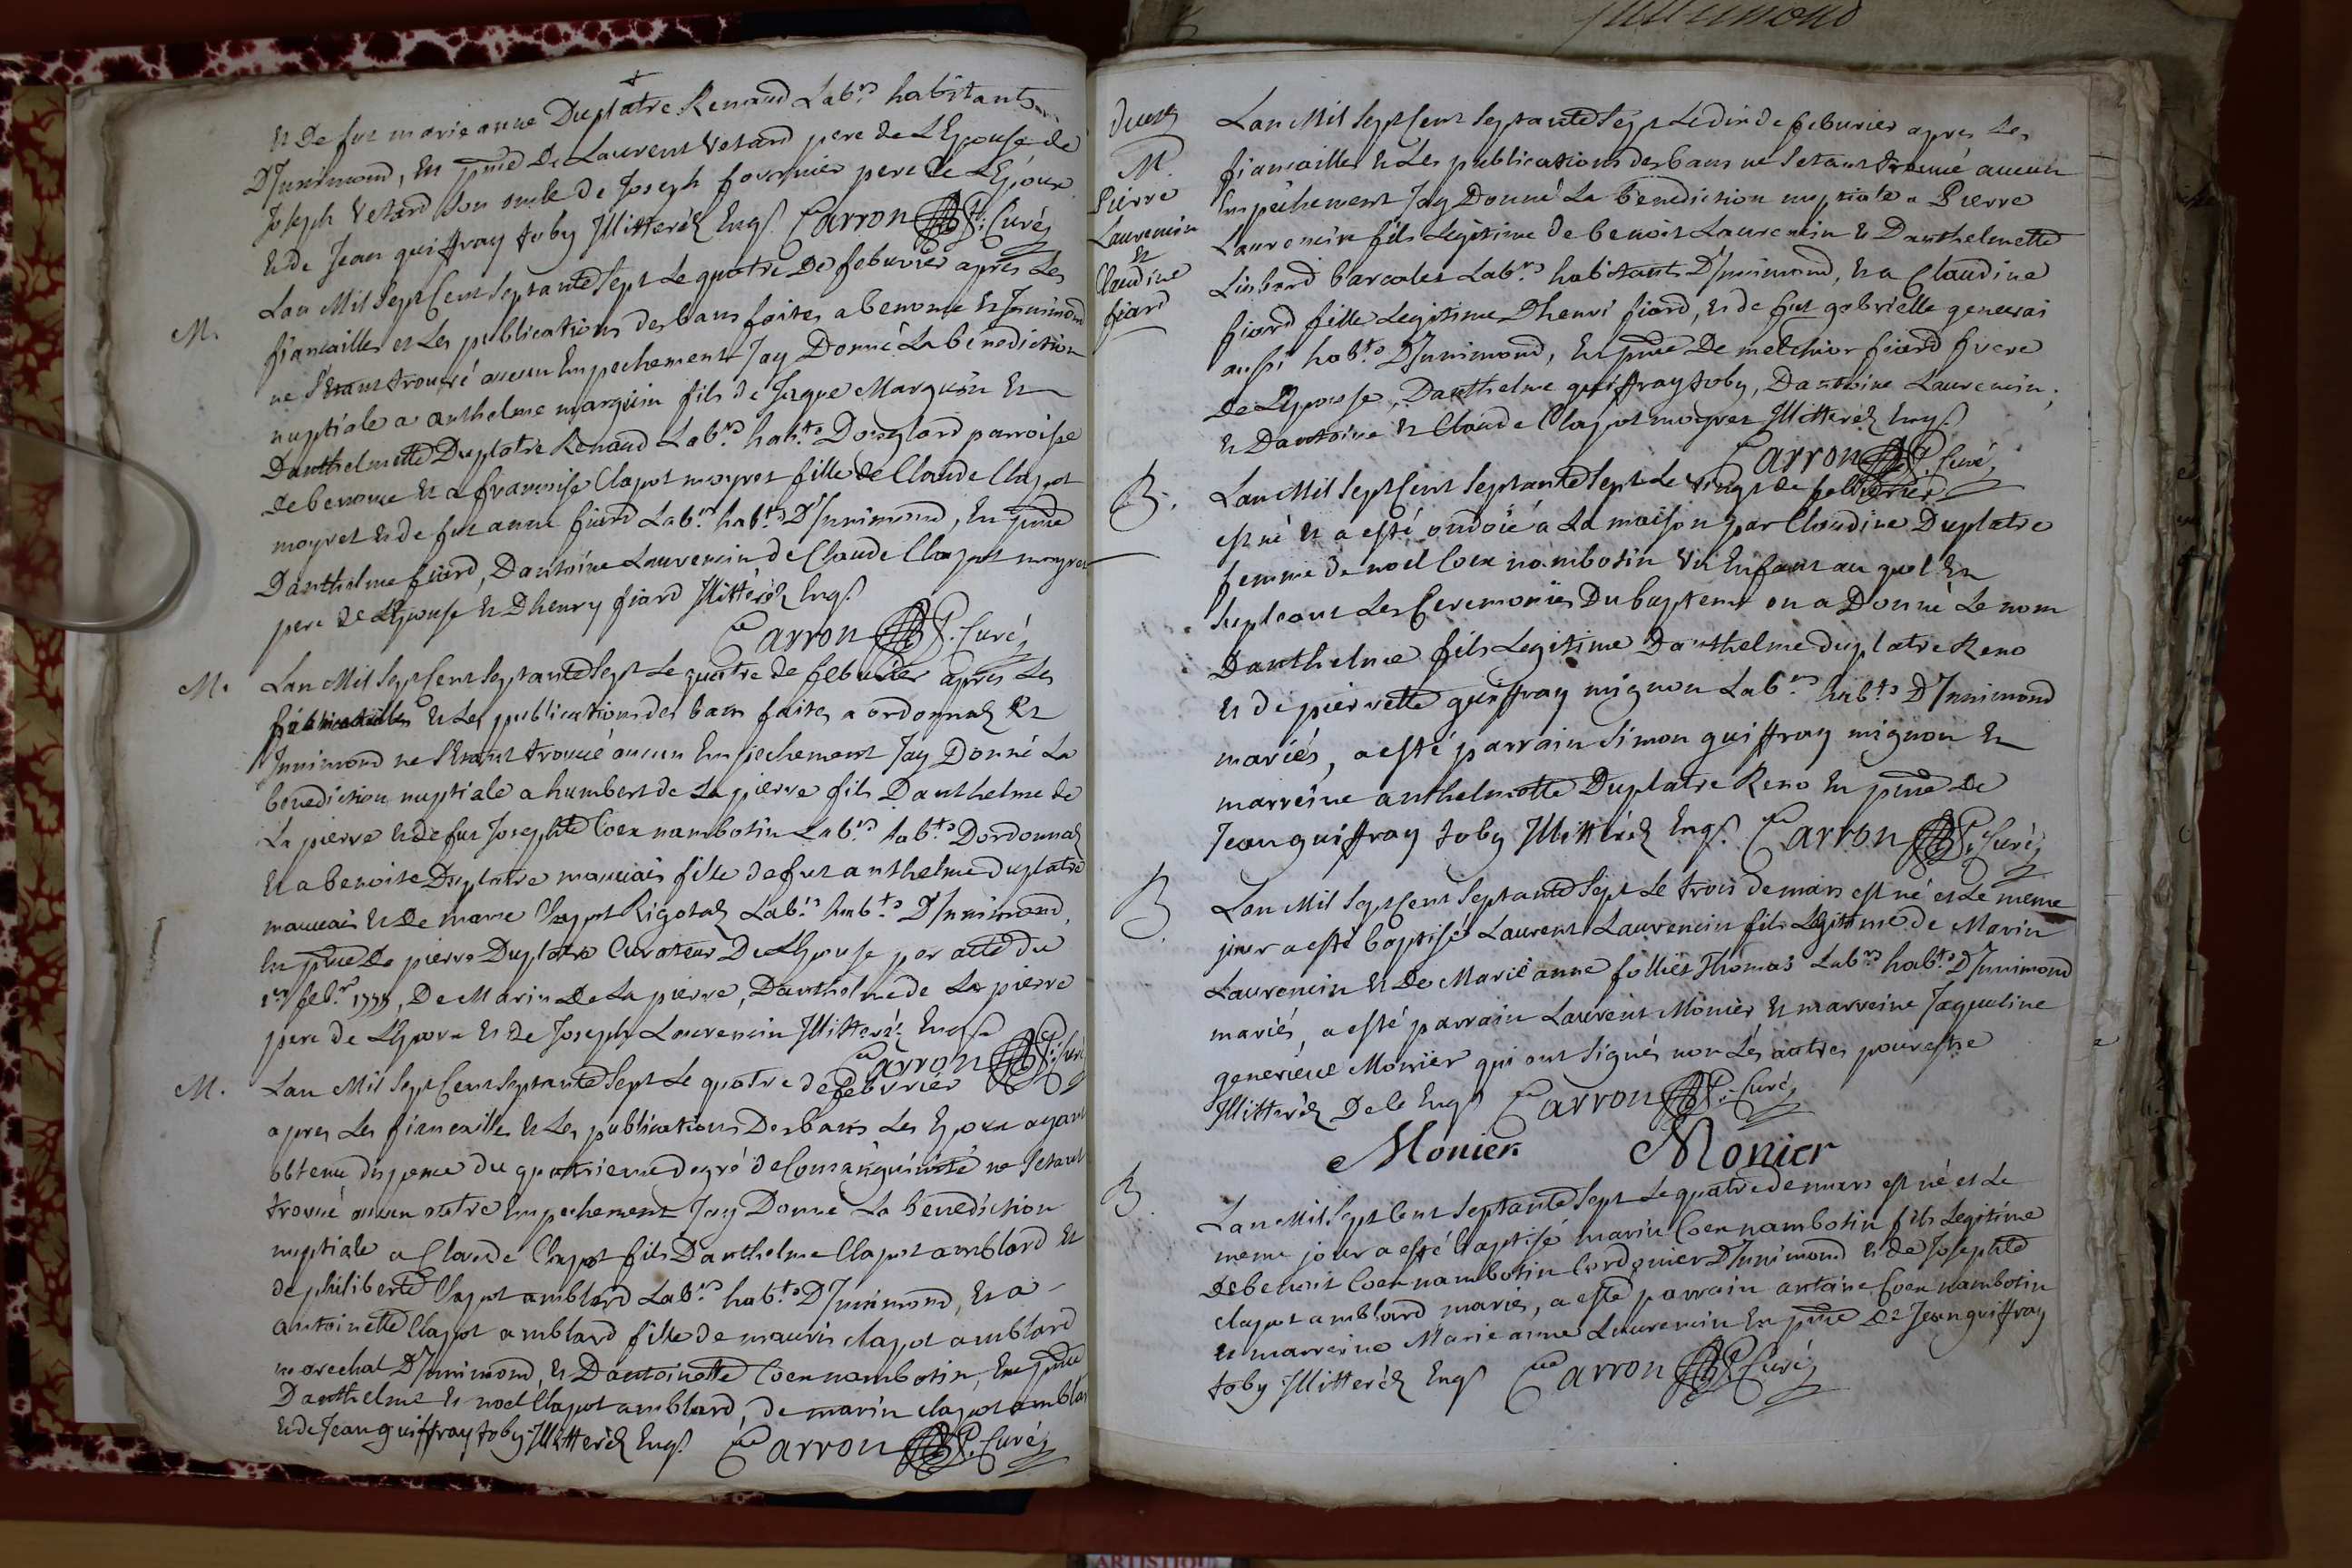 Et De fut marie anne Duplatre Renaud Lab.rs habitants
D'Innimond, En pnce De Laurent Vetard pere de L'Epouse de
Joseph Vetard son oncle de Joseph fournier pere de L'Epoux
Et de Jean quiffray toby Illitteréz Enqs Carron P. Curé
M.
Lan Mil Sept Cent Septante Sept Le quatre De feburier apres Les
fiancailles et Les publications des bans faites a benonce Et Innimond
ne S'étant trouvé aucun Empechement Jay Donné La bénédiction
nuptiale a anthelme marguin fils de Jaque Marguin Et
Danthelmette Duplatre Renaud Lab.rs hab.ts Douglard parroisse
de benonce Et a francoise Clapot moyret fille de Claude Clapot
moyret et de fut anne fiard Lab.rs hab.ts D'Innimond, En pnce
Danthelme fiard, Dantoine Laurencin, de Claude Clapot moyret
pere de L'Epouse Et Dhenry fiard Illitteréz Enqs
Carron P. Curé
M.
Lan Mil Sept Cent Septante Sept Le quatre de feburier apres Les
fiancailles Et Les publications des bans faites a ordonnaz Et
Innimond ne S'étant trouvé aucun Empechement Jay Donné La
benediction nuptiale a humbert de La pierre fils Danthelme de
La pierre et de fut Josephte Coen nambotin Lab.rs hab.ts Dordonnaz
Et a benoite Duplatre mauvais fille de fut anthelme duplatre
mauvais Et de marie Clapot Rigotaz Lab.rs hab.ts D'Innimond,
En pnce De pierre Duplatre Curateur De L'Epouse par acte du
1er feb.r 1777, De Marin De La pierre, Danthelme de La pierre
pere de L'Epoux Et De Joseph Laurencin Illitteréz Enqs
Carron P. Curé
M.
Lan Mil Sept Cent Septante Sept Le quatre de feburier
apres Les fiancailles Et Les publications Des bans Les Epoux ayant
obtenu dispense du quatrieme degré de Consanguinité ne S'étant
trouvé aucun autre Empechement Jay Donné La benediction
nuptiale a Claude Clapot fils Danthelme Clapot amblard Et
de philiberte Clapot amblard Lab.rs hab.ts D'Innimond, Et a
antoinette Clapot amblard fille de maurin clapot amblard
marechal D'Innimond, Et Dantoinette Coen nambotin, En pnce
Danthelme Et noel Clapot amblard, de marin clapot amblar
Et de Jean quiffray toby Illitteréz Enqs Carron P. Curé
M.
Pierre
Laurencin
Et
Claudine
fiard
Lan Mil Sept Cent Septante Sept Le dix de feburier apres Les
fiancailles Et Les publications des bans ne S'étant trouvé aucun
Empêchement Jay Donné La bénédiction nuptiale a Pierre
Laurencin fils Légitime de benoit Laurencin Et Danthelmette
Lisbard barcolet Lab.rs habitants D'Innimond, Et a Claudine
fiard fille Legitime Dhenri fiard, Et de fut gabrielle genevrai
aussi hab.ts D'Innimond, En pnce De melchior fiard frere
de L'Epouse, Danthelme quiffray toby, Dantoine Laurencin,
Et Dantoine Et Claude Clapot moyret Illitteréz Enqs
Carron P. Curé
B.
Lan Mil Sept Cent Septante Sept Le vingt de feburier
est né Et a esté ondoié a La maison par Claudine Duplatre
femme de noel Coen nambotin Un Enfant au quel En
Supleant Les Ceremonies Du bapteme on a Donné Le nom
Danthelme fils Legitime Danthelme duplatre Reno
Et de pierrette quiffray mignon Lab.rs hab.ts D'Innimond
mariés, a esté parrain Simon quiffray mignon Et
marreine anthelmette Duplatre Reno En pnce De
Jean quiffray toby Illitteréz Enqs. Carron P. Curé
B.
Lan Mil Sept Cent Septante Sept Le trois de mars est né et Le meme
jour a esté baptisé Laurent Laurencin fils Legitime de Marin
Laurencin Et De Marie anne folliet Thomas Lab.rs hab.ts D'Innimond
mariés, a esté parrain Laurent Monier Et marreine Jaqueline
genevieve Monier qui ont Signés non Les autres pour estre
Illitteréz De ce Enqs Carron P. Curé
Monier Monier
B.
Lan Mil Sept Cent Septante Sept Le quatre de mars est né et Le
meme jour a esté baptisé marin Coen nambotin fils Legitime
De benoit Coen nambotin Cordonier D'Innimond Et de Josephte
clapot amblard mariés, a esté parrain antoine Coen nambotin
Et marreine Marie anne Laurencin En pnce De Jean quiffray
toby Illitteréz Enqs Carron P. Curé
ARTISTIQUE